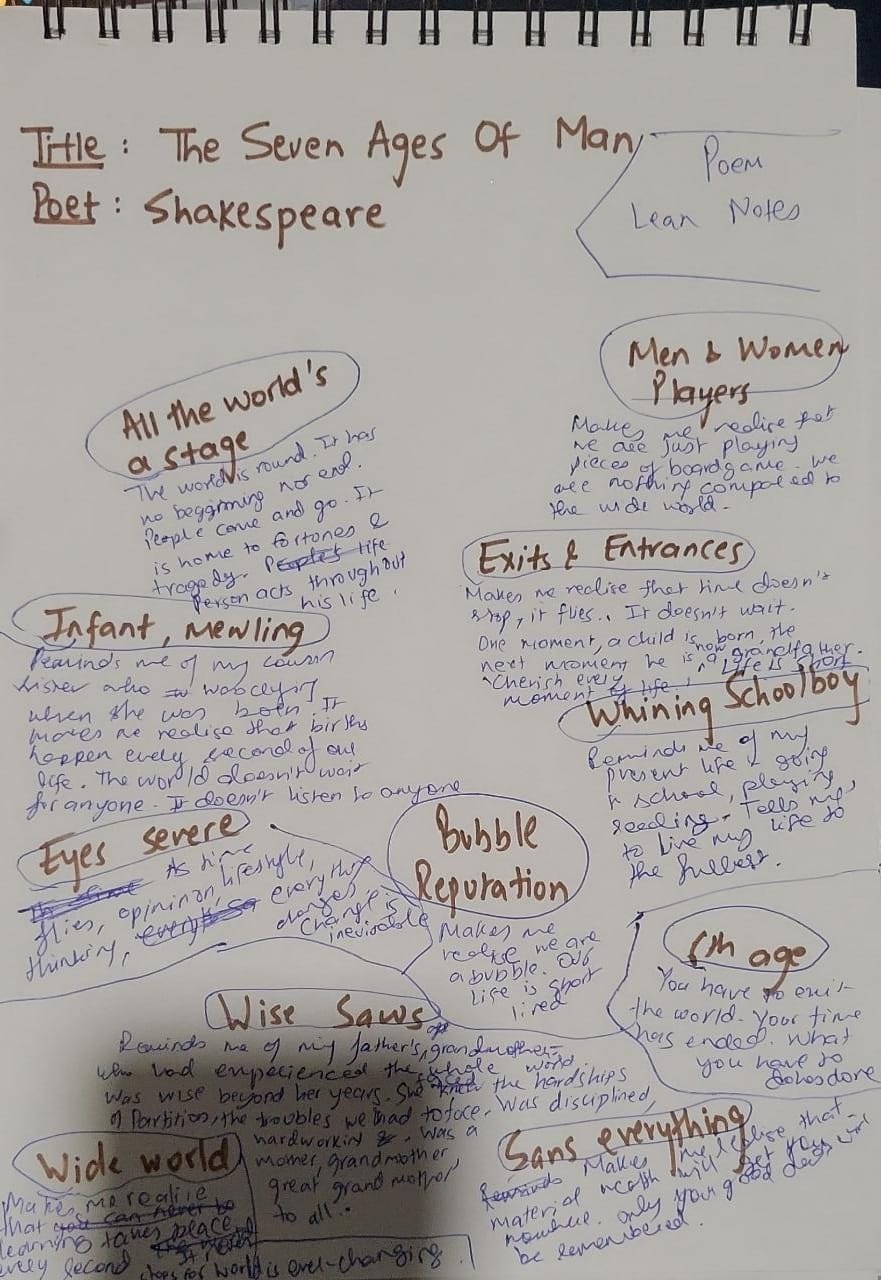 Title : The Seven Ages Of Man
Poet : Shakespeare
Poem
Lean Notes
All the world's
a stage
The world is round. It has
no beggining nor end.
People come and go. It
is home to fortones &
tragedy. Peoples life
Person acts throughout
his life.
Men & Women
Players
Makes me realise that
we are just playing
pieces of boardgame. We
are nothing compared to
the wide world.
Exits & Entrances
Makes me realise that time doesn't
stop, it flies.. It doesn't wait.
One moment, a child is born, the
next moment he is now a grandfather.
Cherish every Life is short
moment of life
Infant, Mewling
Reminds me of my cousin
sister who was
when she was born. It
makes me realise that births
happen every second of our
life. The world doesn't wait
for anyone. It doesn't listen to anyone
Whining Schoolboy
Reminds me of my
present life going
school, playing,
reading. Tells me,
to live my life to
the fullest.
Eyes severe
As time
flies, opininon, lifestyle,
thinking, everything
changes.
Change is
inevitable
Bubble
Reputation
Makes me
realise we are
a bubble. Our
life is short
lived
6th age
You have to exit
the world. Your time
has ended. What
you have to
do has done
Wise Saws
Reminds me of my father's grandmother
who had experienced the whole world.
Was wise beyond her years. She the hardships
of Partition, the troubles we had to face. Was disciplined,
hardworkin &. Was a
mother, grandmother,
great grand mother
to all..
Wide world
Makes me realise
that you can never be
learning takes place
every second
does for world is ever-changing.
Sans everything
Reminds Makes me realise that
material wealth will get you
nowhere. Only your good deeds will
be remembered.